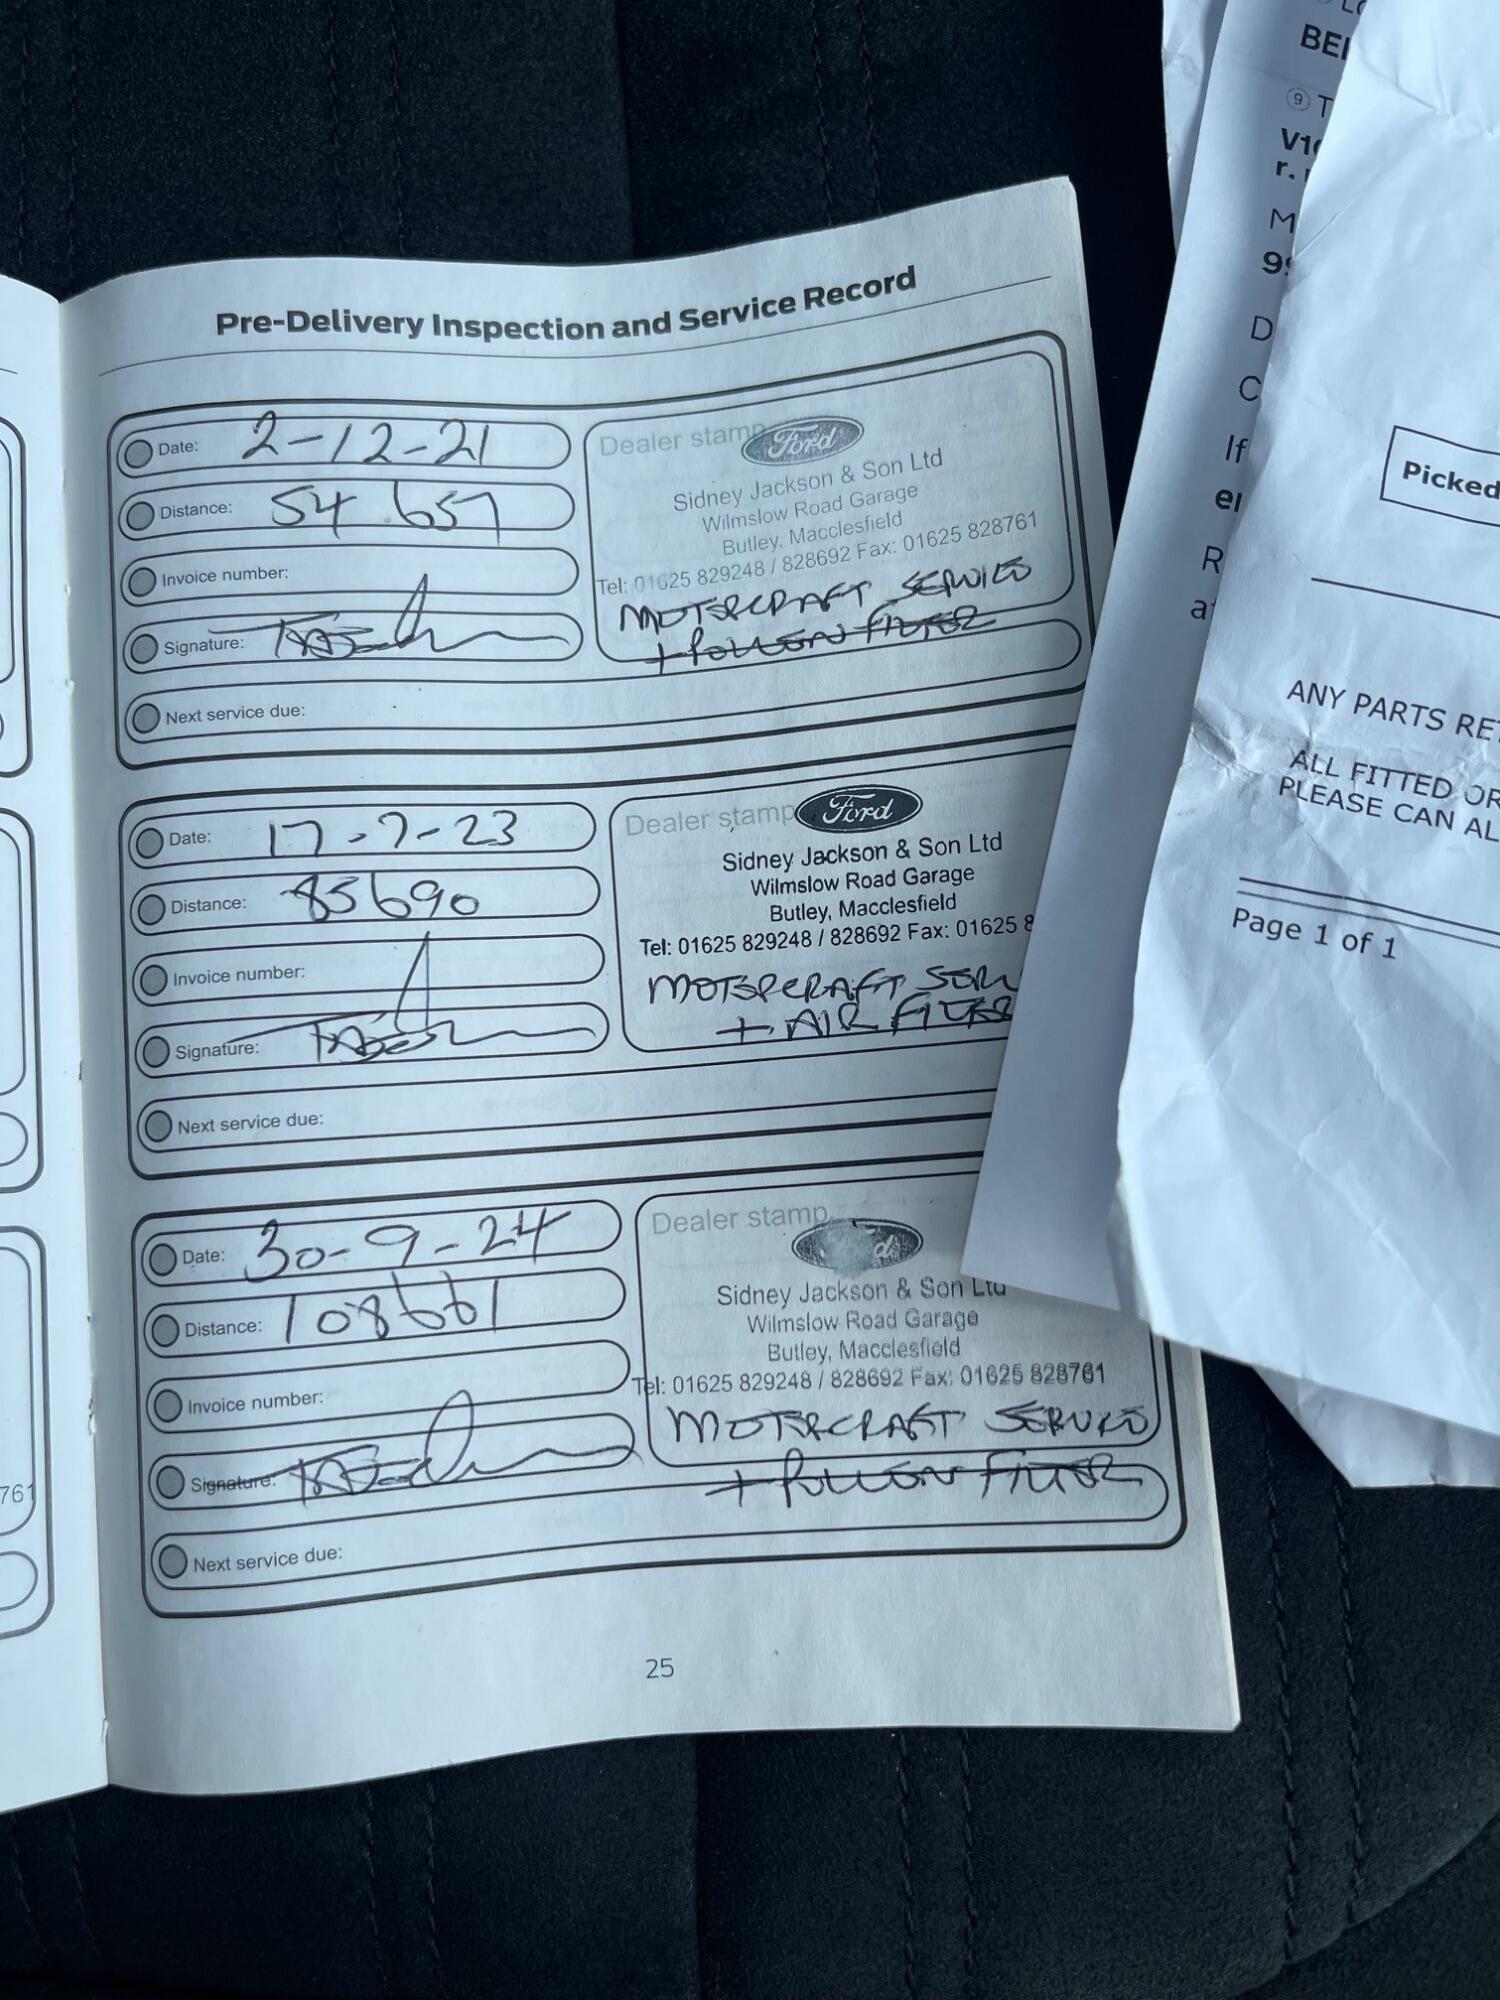 Pre-Delivery Inspection and Service Record
Date: 2-12-21
Distance: 54 657
Invoice number:
Signature:
Next service due:
Dealer stamp Ford
Sidney Jackson & Son Ltd
Wilmslow Road Garage
Butley, Macclesfield
Tel: 01625 829248 / 828692 Fax: 01625 828761
MOTORCRAFT SERVICE
+ POLLEN FILTER
Date: 17-7-23
Distance: 85690
Invoice number:
Signature:
Next service due:
Dealer stamp Ford
Sidney Jackson & Son Ltd
Wilmslow Road Garage
Butley, Macclesfield
Tel: 01625 829248 / 828692 Fax: 01625 8
MOTORCRAFT SERV
+ AIR FILTER
Date: 30-9-24
Distance: 108661
Invoice number:
Signature:
Next service due:
Dealer stamp Ford
Sidney Jackson & Son Ltd
Wilmslow Road Garage
Butley, Macclesfield
Tel: 01625 829248 / 828692 Fax: 01625 828761
MOTORCRAFT SERVICE
+ POLLEN FILTER
25
761
BEL
9 T
V1
r.
M
9
D
C
If
R
Picked
ANY PARTS RET
ALL FITTED OR
PLEASE CAN AL
Page 1 of 1